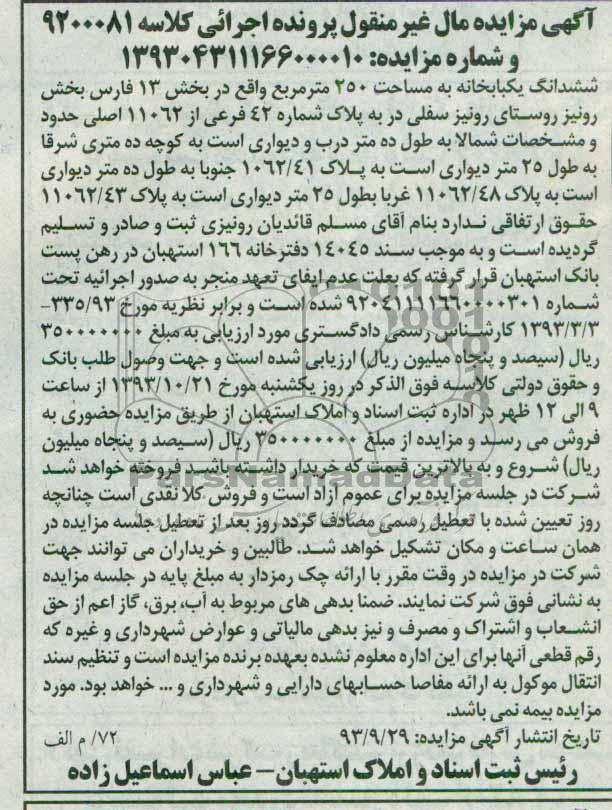 آگهی مزایده مال غیر منقول پرونده اجرائی کلاسه ۹۲۰۰۰۸۱
و شماره مزایده: ۱۳۹۳۰۴۳۱۱۱۶۶۰۰۰۰۱۰
ششدانگ یکبابخانه به مساحت ۲۵۰ مترمربع واقع در بخش ۱۳ فارس بخش
رونیز روستای رونیز سفلی در به پلاک شماره ۴۲ فرعی از ۱۱۰۶۲ اصلی حدود
و مشخصات شمالا به طول ده متر درب و دیواری است به کوچه ده متری شرقا
به طول ۲۵ متر دیواری است به پلاک ۱۰۶۲/۴۱ جنوبا به طول ده متر دیواری
است به پلاک ۱۱۰۶۲/۴۸ غربا بطول ۲۵ متر دیواری است به پلاک ۱۱۰۶۲/۴۳
حقوق ارتفاقی ندارد بنام آقای مسلم قائدیان رونیزی ثبت و صادر و تسلیم
گردیده است و به موجب سند ۱۴۰۴۵ دفترخانه ۱۶۶ استهبان در رهن پست
بانک استهبان قرار گرفته که بعلت عدم ایفای تعهد منجر به صدور اجرائیه تحت
شماره ۹۲۰۴۱۱۱۱۶۶۰۰۰۰۳۰۱ شده است و برابر نظریه مورخ ۳۳۵/۹۳-
۱۳۹۳/۳/۳ کارشناس رسمی دادگستری مورد ارزیابی به مبلغ ۳۵۰۰۰۰۰۰۰
ریال (سیصد و پنجاه میلیون ریال) ارزیابی شده است و جهت وصول طلب بانک
و حقوق دولتی کلاسه فوق الذکر در روز یکشنبه مورخ ۱۳۹۳/۱۰/۲۱ از ساعت
۹ الی ۱۲ ظهر در اداره ثبت اسناد و املاک استهبان از طریق مزایده حضوری به
فروش می رسد و مزایده از مبلغ ۳۵۰۰۰۰۰۰۰ ریال (سیصد و پنجاه میلیون
ریال) شروع و به بالاترین قیمت که خریدار داشته باشد فروخته خواهد شد
شرکت در جلسه مزایده برای عموم آزاد است و فروش کلا نقدی است چنانچه
روز تعیین شده با تعطیل رسمی مصادف گردد روز بعد از تعطیل جلسه مزایده در
همان ساعت و مکان تشکیل خواهد شد. طالبین و خریداران می توانند جهت
شرکت در مزایده در وقت مقرر با ارائه چک رمزدار به مبلغ پایه در جلسه مزایده
به نشانی فوق شرکت نمایند. ضمنا بدهی های مربوط به آب، برق، گاز اعم از حق
انشعاب و اشتراک و مصرف و نیز بدهی مالیاتی و عوارض شهرداری و غیره که
رقم قطعی آنها برای این اداره معلوم نشده بعهده برنده مزایده است و تنظیم سند
انتقال موکول به ارائه مفاصا حسابهای دارایی و شهرداری و ... خواهد بود. مورد
مزایده بیمه نمی باشد.
تاریخ انتشار آگهی مزایده: ۹۳/۹/۲۹
۷۲/ م الف
رئیس ثبت اسناد و املاک استهبان – عباس اسماعیل زاده
ParsNamadData